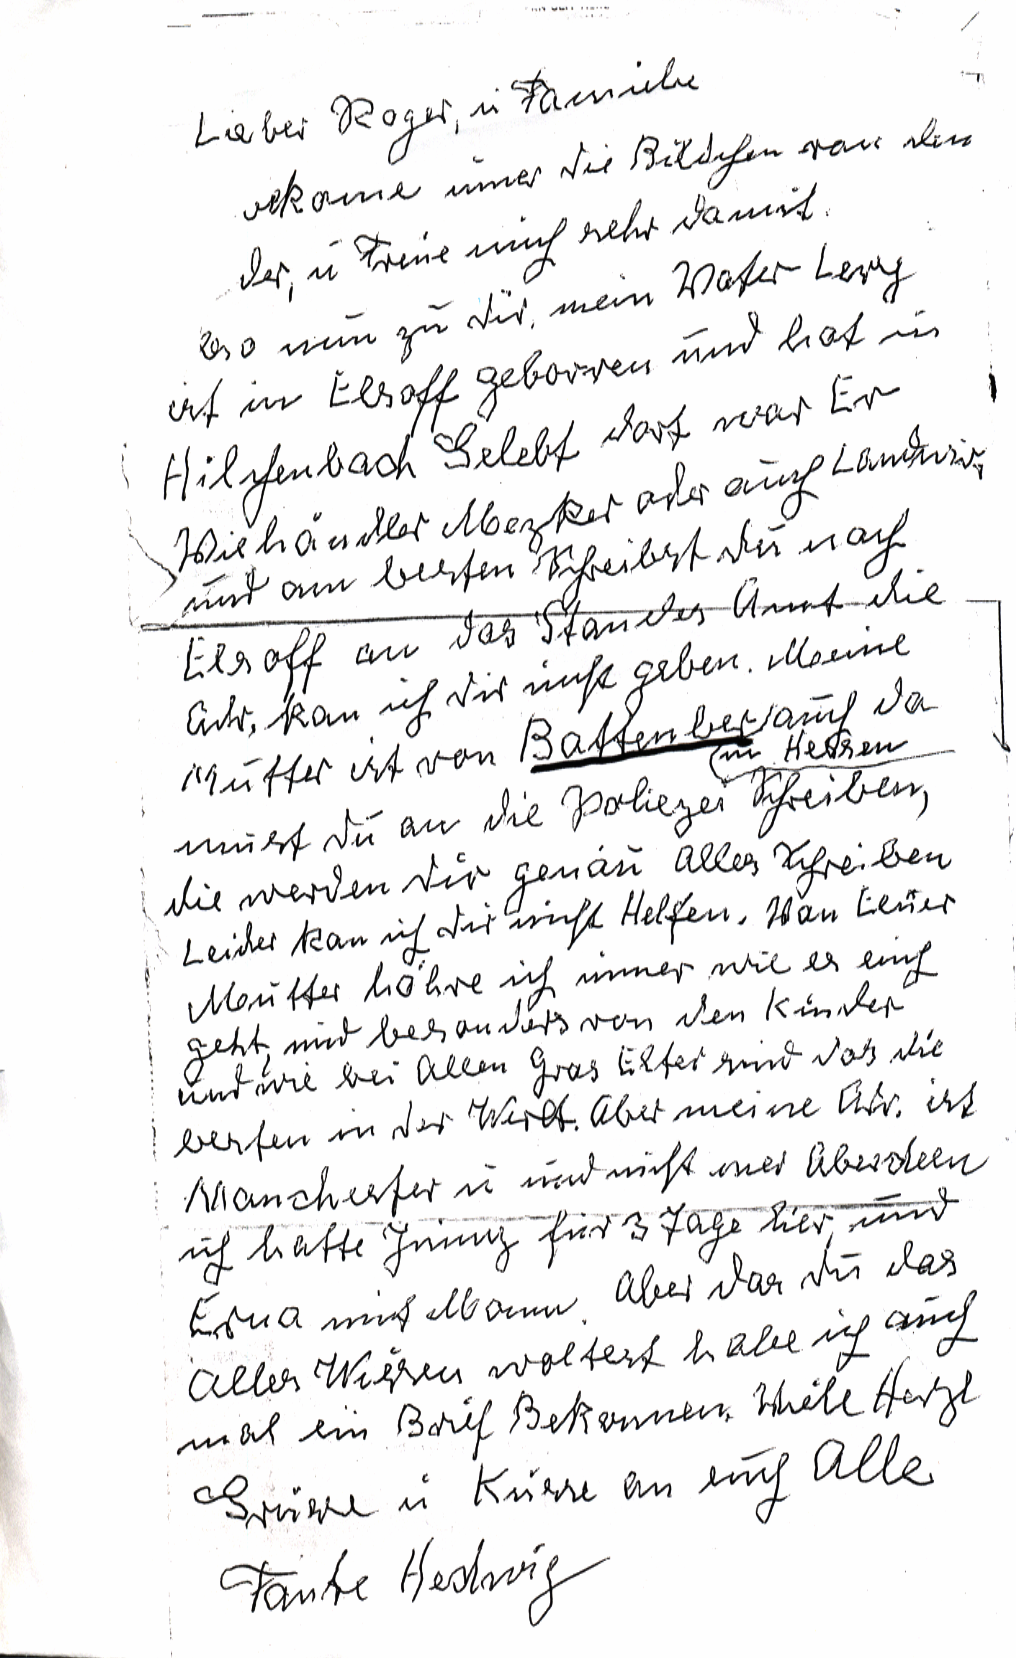 Lieber Roger, u Familie
ekome imer die Bildchen von den
der, u Freue mich sehr damit.
lso nun zu dir, mein Vater Levy
ist in Elsoff geborren und hat in
Hilchenbach Gelebt dort war Er
Viehändler Mezker oder auch Landwir
und am besten Schreibst du nach
Elsoff an das Standes Amt die
Adr. kan ich dir nicht geben. Meine
Mutter ist von Battenber auch da
(in Hessen
must du an die Poliezei Schreiben,
die werden dir genau Alles Schreiben
Leider kan ich dir nicht Helfen. Von Euer
Mutter höhre ich immer wie es euch
geht, und besonders von den Kinder
und wie bei Allen Gros Elter sind das die
besten in der Welt. Aber meine Adr. ist
Manchester u und nicht mer Aberdeen
ich hatte für 3 Tage hier, und
Erna mit Mann. Aber das du das
Alles Wissen woltest habe ich auch
mal ein Brief Bekommen. Viele Herzl
Grüsse u Küsse an euch Alle
Tante Hedwig